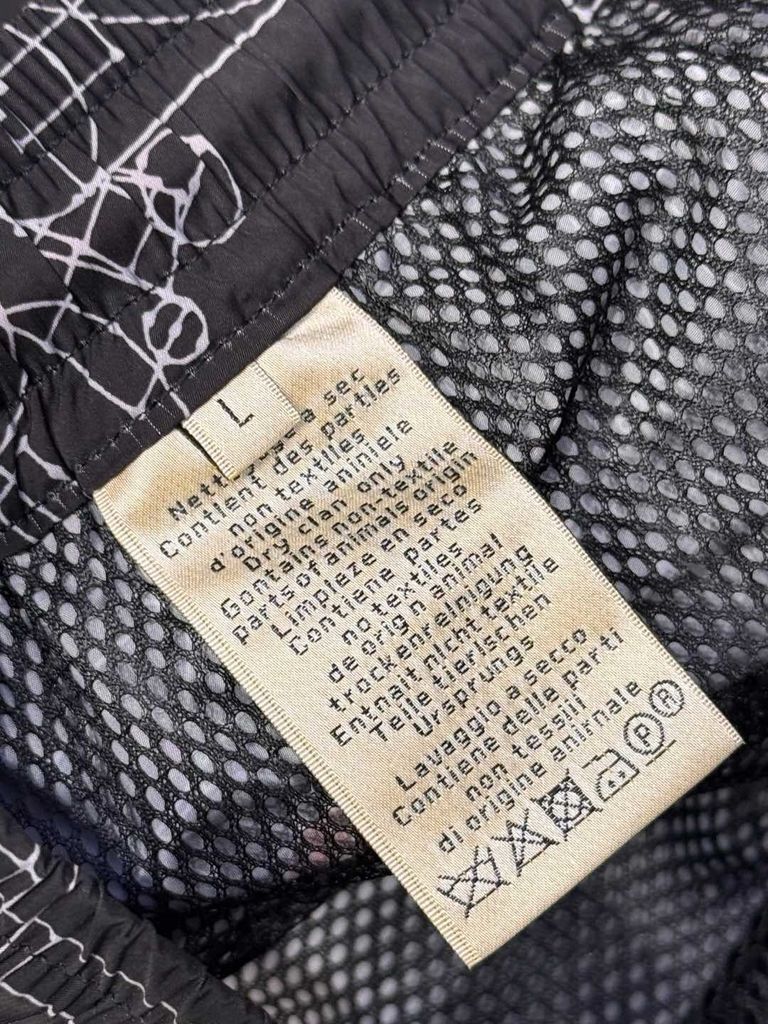 L
Nett a sec
Contient des partles
non textiles
d'origine aniniele
Dry clan only
Contains non-textile
parts of animals origin
Limpleze en seco
Contiene partes
no textiles
de orign animal
trockenreinigung
Entnait nicht textile
Telle tierischen
Ursprungs
Lavaggio a secco
Contiene delle parti
non tessiii
di origine anirnale
P R